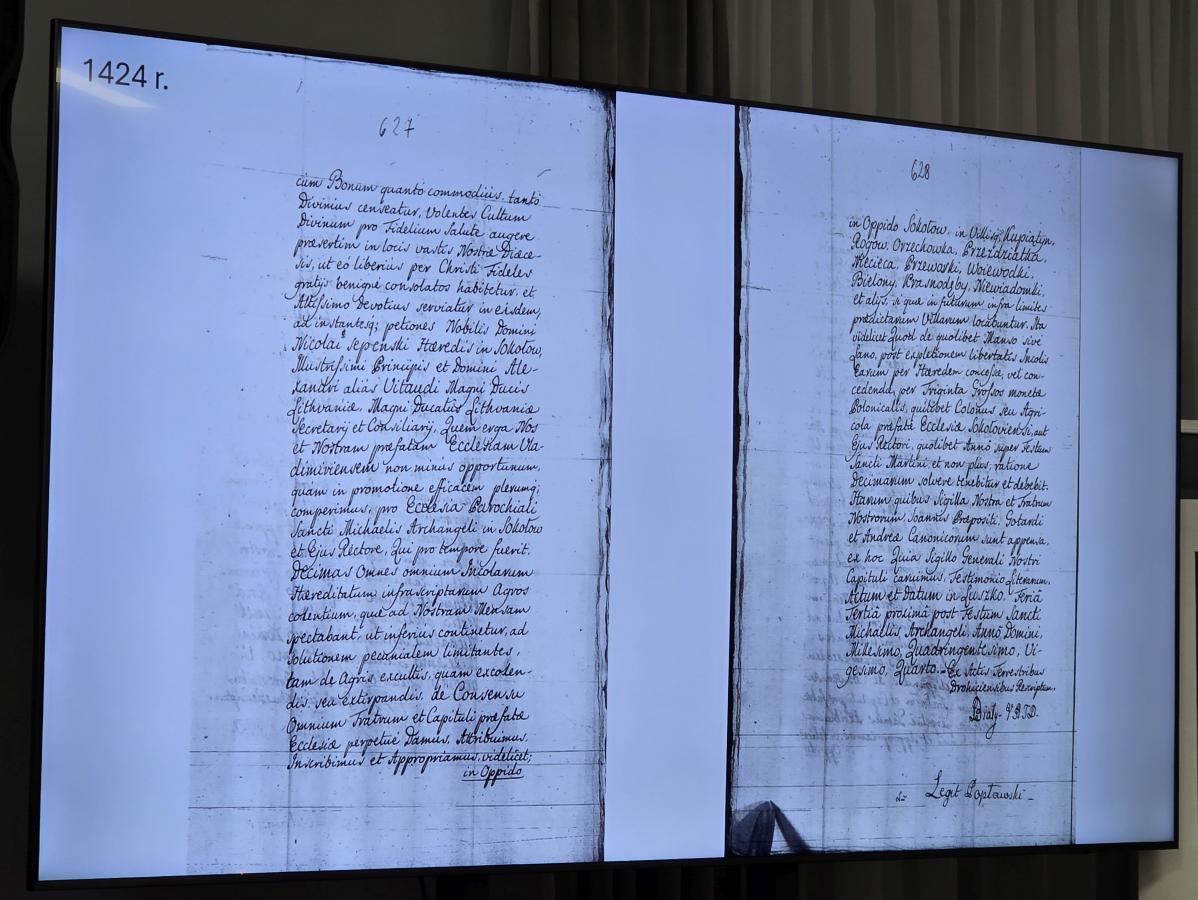 1424 r.
627
cùm Bonum quantò commodiùs, tantò
Divinius censeatur, Volentes Cultum
Divinum pro Fidelium Salute augere
præsertim in locis vastis Nostræ Diæce-
sis, ut eò liberiùs per Christi Fideles
gratijs benignè consolatos habitetur, et
Altissimo Devotius serviatur in eisdem,
ad instantesq; petiones Nobilis Domini
Nicolai Sepenski Hæredis in Sokołow,
Illustrissimi Principis et Domini Ale-
xandri aliàs Vitaudi Magni Ducis
Lithvaniæ, Magni Ducatûs Lithvaniæ
Secretarij et Consiliarij, Quem erga Nos
et Nostram præfatam Ecclesiam Vla-
dimiriensem non minus opportunum,
quam in promotione efficacem plerumq;
comperimus, pro Ecclesia Parochiali
Sancti Michaelis Archangeli in Sokołow
et Ejus Rectore, Qui pro tempore fuerit,
Decimas Omnes omnium Incolarum
Hæreditatum infrascriptarum Agros
colentium, quæ ad Nostram Mensam
spectabant, ut inferius continetur, ad
Solutionem pecunialem limitantes,
tam de Agris excultis, quam excolen-
dis, seu extirpandis, de Consensu
Omnium Fratrum et Capituli præfatæ
Ecclesiæ perpetuè Damus, Attribuimus,
Inscribimus et Appropriamus, videlicet;
in Oppido
628
in Oppido Sokołow, in Villis Kupiatyn,
Rogow, Orzechowka, Przezdziatka,
Nieciecz, Brzewoski, Woiewodki,
Bielony, Krasnodęby, Niewiadomki,
et alijs, si quæ in futurum infra limites
prædictarum Villarum locabuntur. Ita
videlicet Quod de quolibet Manso sive
Lano, post expletionem libertatis Incolis
Earum per Hæredem concessæ, vel con-
cedendæ, per Triginta Grossos monetæ
Polonicalis, quilibet Colonus seu Agri-
cola præfatæ Ecclesiæ Sokoloviensi, aut
Ejus Rectori, quolibet Annô super Festum
Sancti Martini, et non plus, ratione
Decimarum solvere tenebitur et debebit.
Harum quibus Sigilla Nostra et Fratrum
Nostrorum, Joannis Præpositi, Gotardi
et Andreæ Canonicorum sunt appensa,
ex hoc Quia Sigillo Generali Nostri
Capituli caruimus, Testimonio Literarum.
Actum et Datum in Łuszko, Feriâ
Tertiâ proximâ post Festum Sancti
Michaelis Archangeli, Annô Domini,
Millesimo, Quadringentesimo, Vi-
gesimo, Quarto. Ex Actis Terrestribus
Drohiciensibus Rescriptum.
Legit Popławski